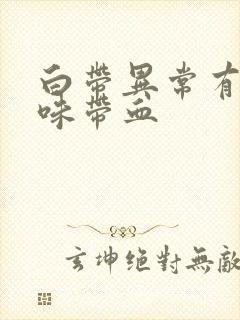 白带異常有
味带血
玄坤绝對無敵